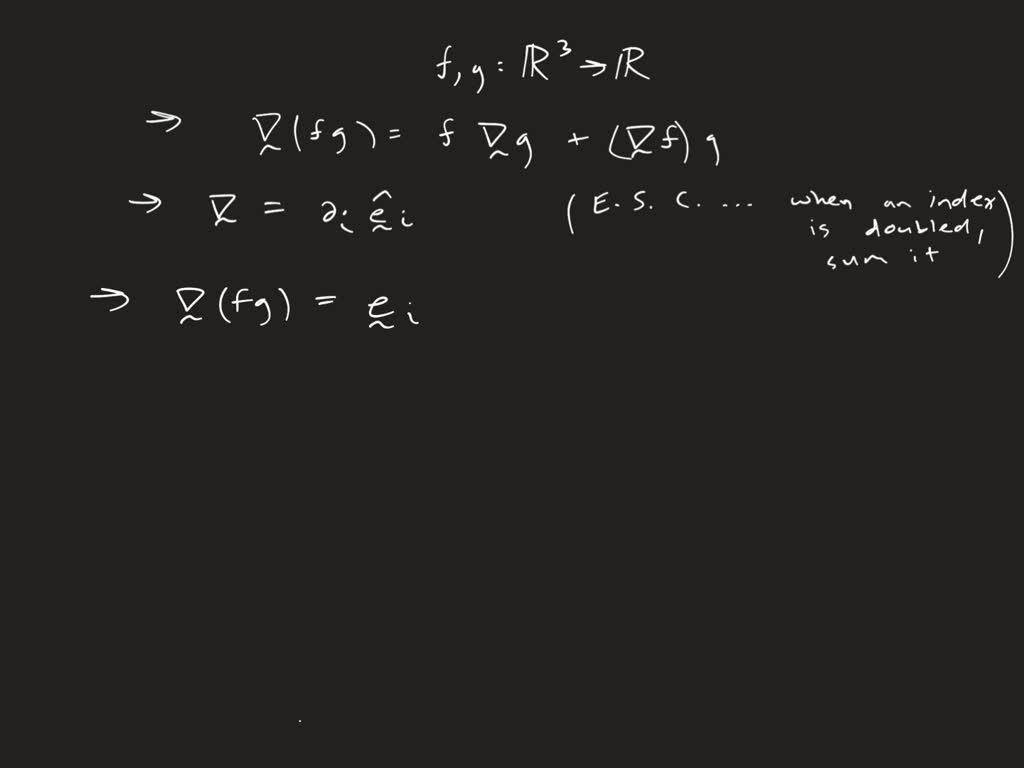 f, g : ℝ³ → ℝ
⇒ ∇̰(fg) = f ∇̰g + (∇̰f) g
→ ∇̰ = ∂ᵢ ḛ̂ᵢ (E. S. C. ... when an index
is doubled,
sum it)
⇒ ∇̰(fg) = ḛᵢ